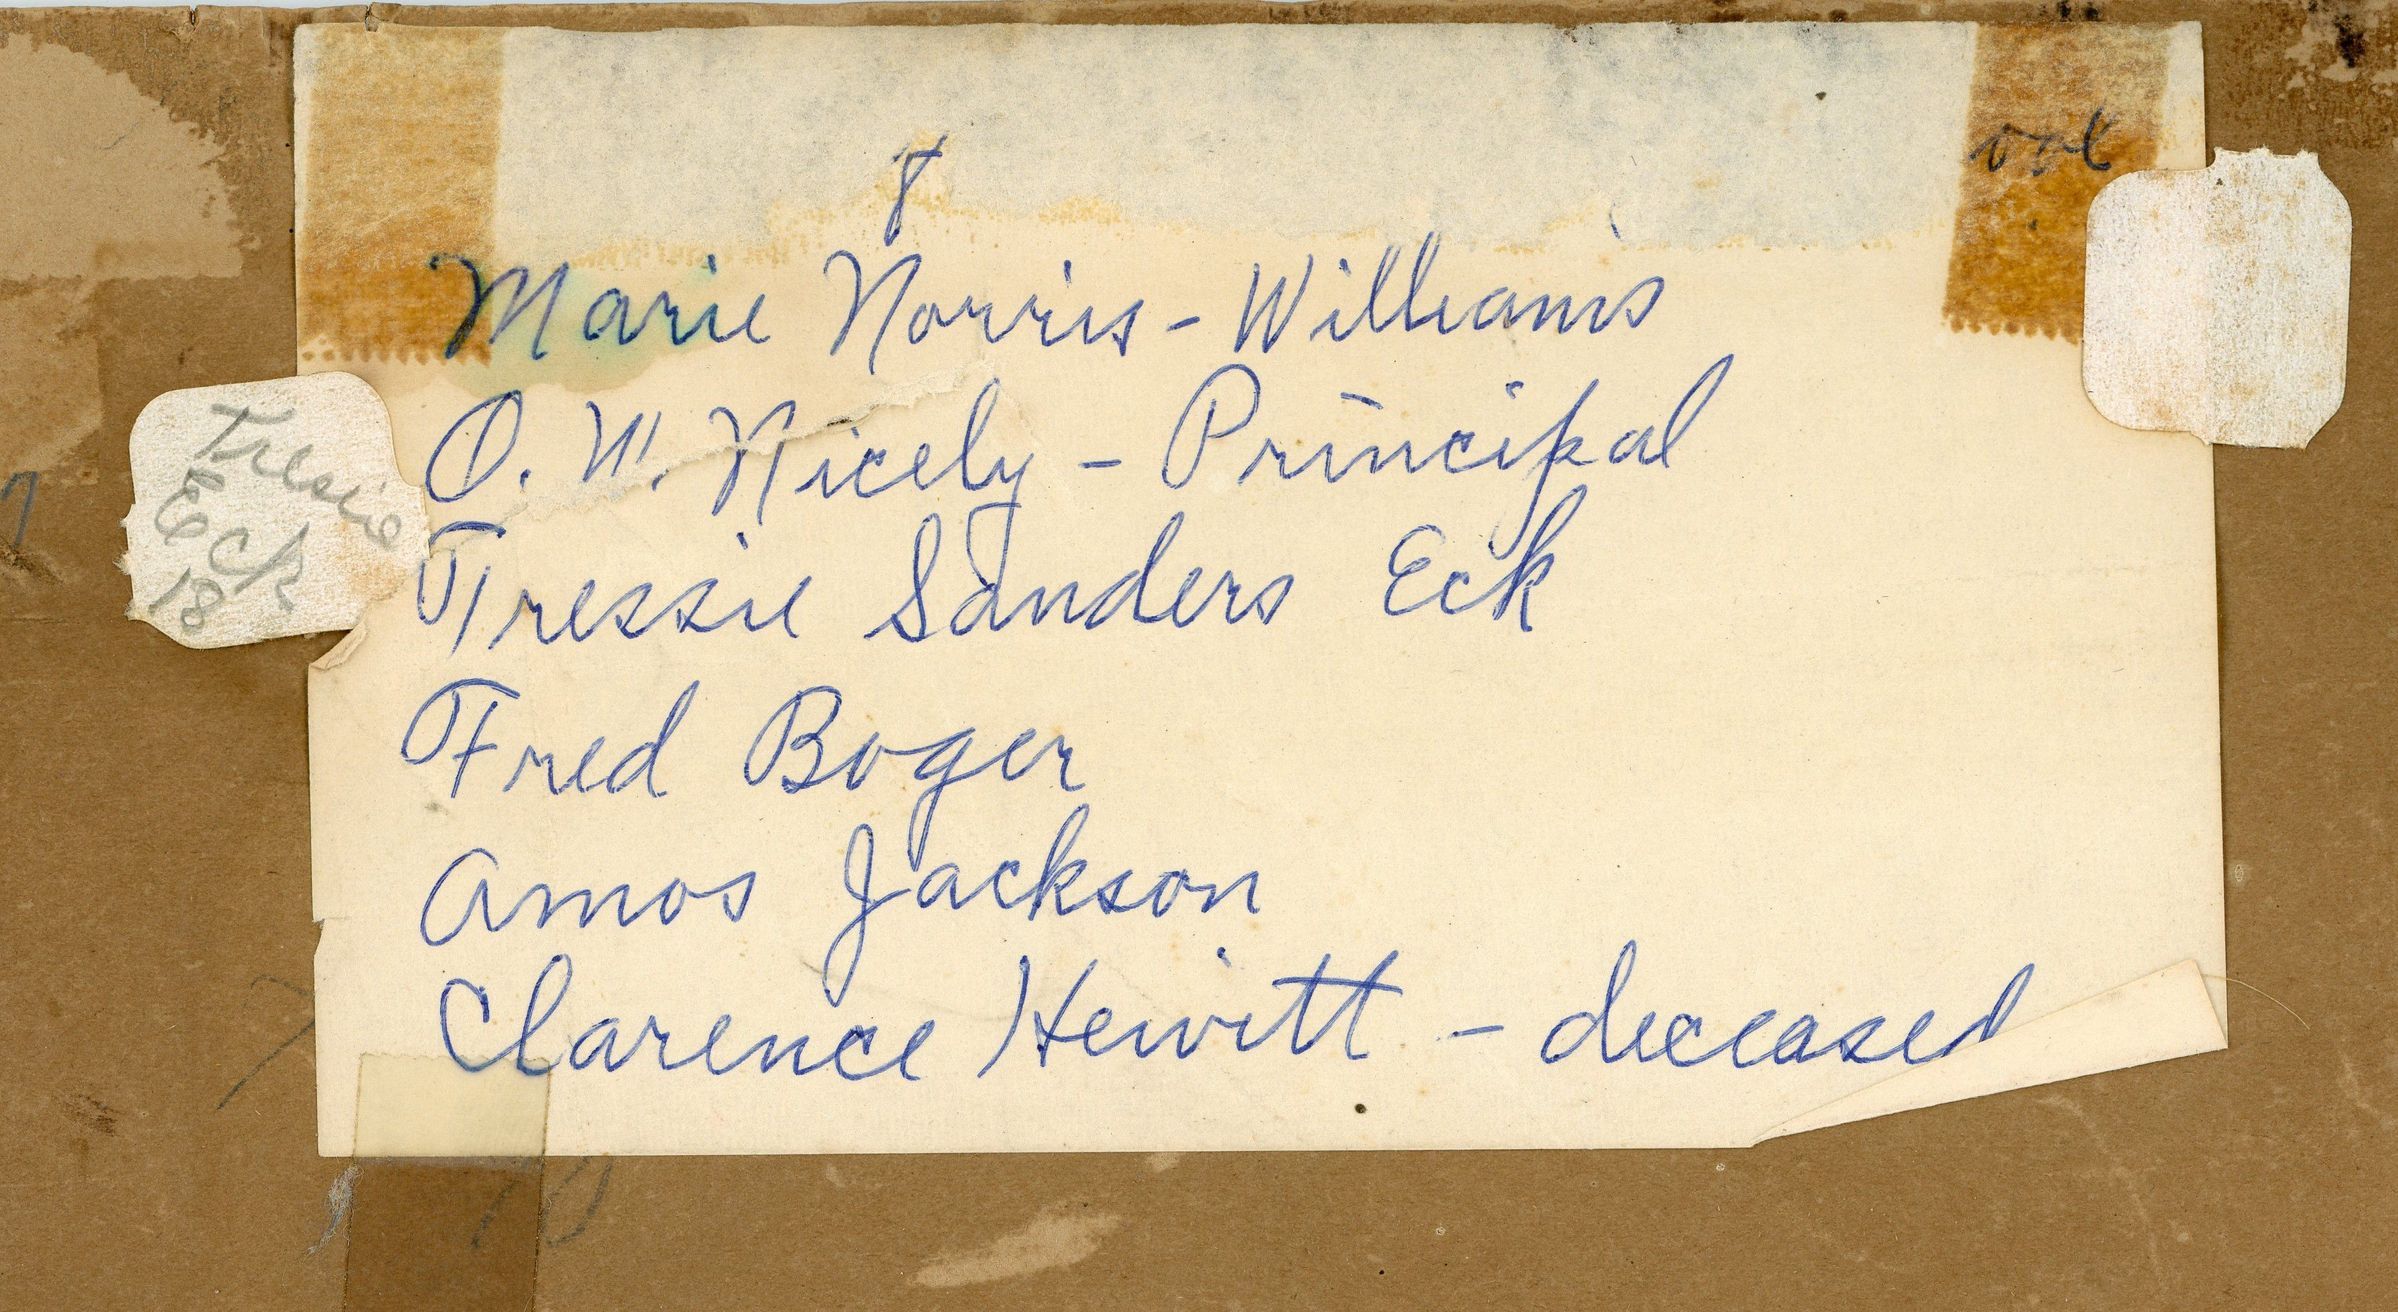 Marie Norris - Williams
O. W. Nicely - Principal
Tressie Sanders Eck
Fred Boger
Amos Jackson
Clarence Hewitt - deceased
Tressie
Eck
18